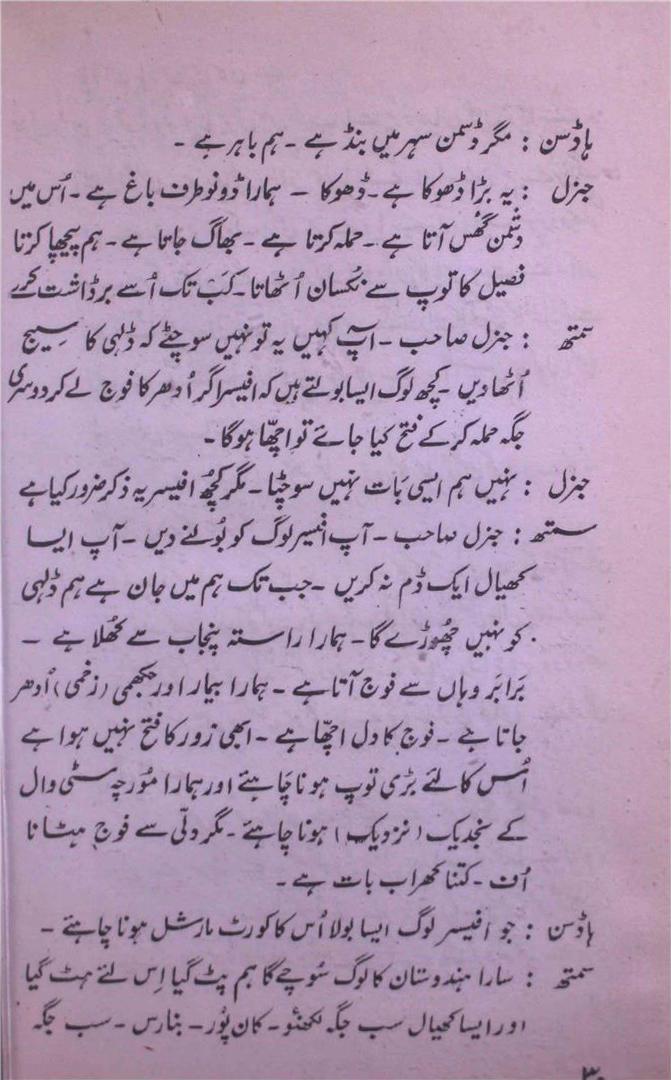 ہاڈسن : مگر دْسمن سہر میں بنڈ ہے ۔ ہم باہر ہے ۔
جنرل : یہ بڑا ڈھوکا ہے ۔ ڈھوکا — ہمارا ڈونوطرف باغ ہے ۔ اُس میں
دشمن گھُس آتا ہے ۔ حملہ کرتا ہے ۔ بھاگ جاتا ہے ۔ ہم پیچھا کرتا
فصیل کا توپ سے نُکسان اُٹھاتا ۔ کَب تک اُسے برڈاشت کرے
سمتھ : جنرل صاحب ۔ آپ کہیں یہ تو نہیں سوچٹے کہ ڈلہی کا سیج
اُٹھا دیں ۔ کچھ لوگ ایسا بولتے ہیں کہ افیسر اگر اُدھر کا فوج لے کر دوسری
جگہ حملہ کر کے فتح کیا جائے تو اچھّا ہوگا ۔
جنرل : نہیں ہم ایسی بَات نہیں سوچٹا ۔ مگر کچھُ افیسر یہ ذکر ضرور کیا ہے
سمتھ : جنرل صاحب ۔ آپ افیسر لوگ کو بُولنے دیں ۔ آپ ایسا
کھیال ایک ڈم نہ کریں ۔ جب تک ہم میں جان ہے ہم ڈلہی
کو نہیں چھُوڑے گا ۔ ہمارا راستہ پنجاب سے کھُلا ہے ۔
بَرابَر وہاں سے فوج آتا ہے ۔ ہمارا بیمار اور جکھمی (زخمی) اُدھر
جاتا ہے ۔ فوج کا دل اچھّا ہے ۔ ابھی زور کا فتح نہیں ہوا ہے
اُس کا لئے بڑی توپ ہونا چَاہئے اور ہمارا مُورچہ سٹی وال
کے نجدیک (نزدیک) ہونا چاہئے ۔ مگر دلّی سے فوج ہٹانا
اُف ۔ کتنا کھراب بات ہے ۔
ہاڈسن : جو افیسر لوگ ایسا بولا اُس کا کورٹ مارشل ہونا چاہئے ۔
سمتھ : سارا ہندوستان کا لوگ سُوچے گا ہم پٹ گیا اِس لئے ہٹ گیا
اور ایسا کھیال سب جگہ لکھنئو ۔ کان پُور ۔ بنارس ۔ سب جگہ